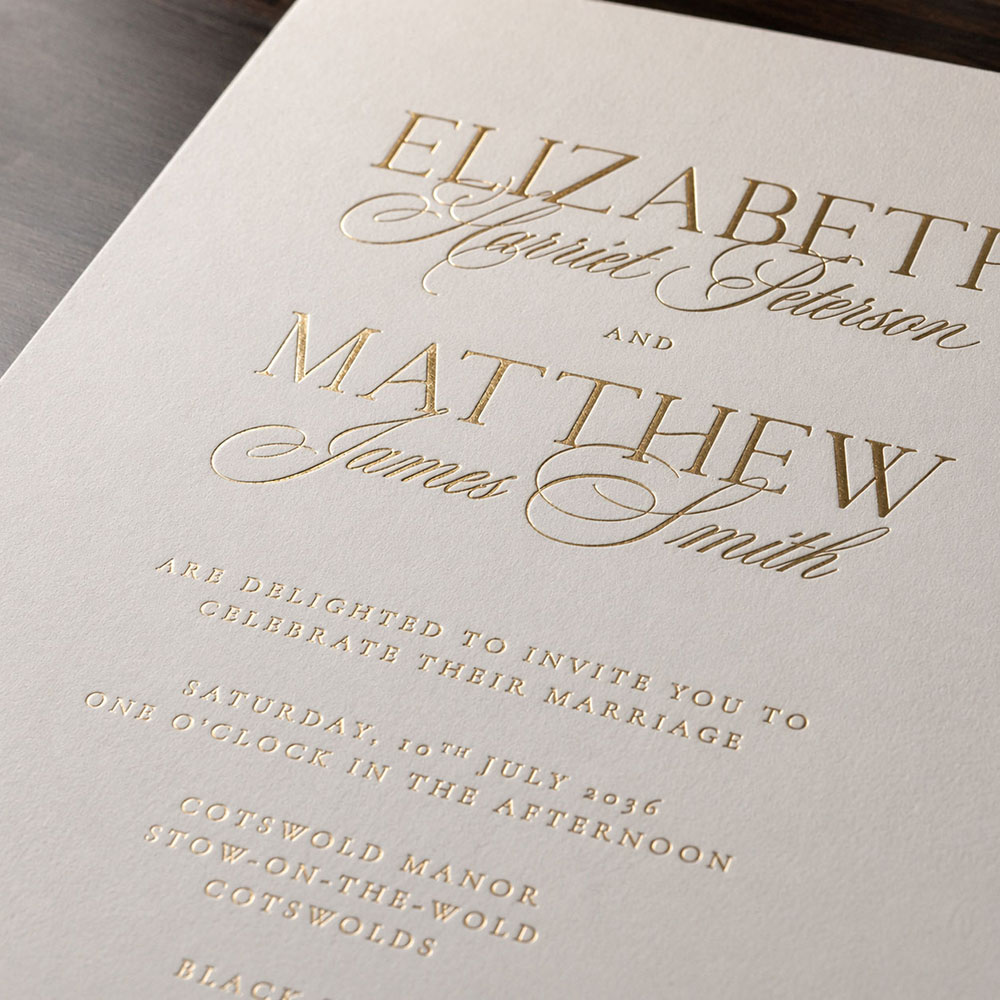 ELIZABETH
Harriet Peterson
AND
MATTHEW
James Smith
ARE DELIGHTED TO INVITE YOU TO
CELEBRATE THEIR MARRIAGE
SATURDAY, 10TH JULY 2036
ONE O'CLOCK IN THE AFTERNOON
COTSWOLD MANOR
STOW-ON-THE-WOLD
COTSWOLDS
BLACK